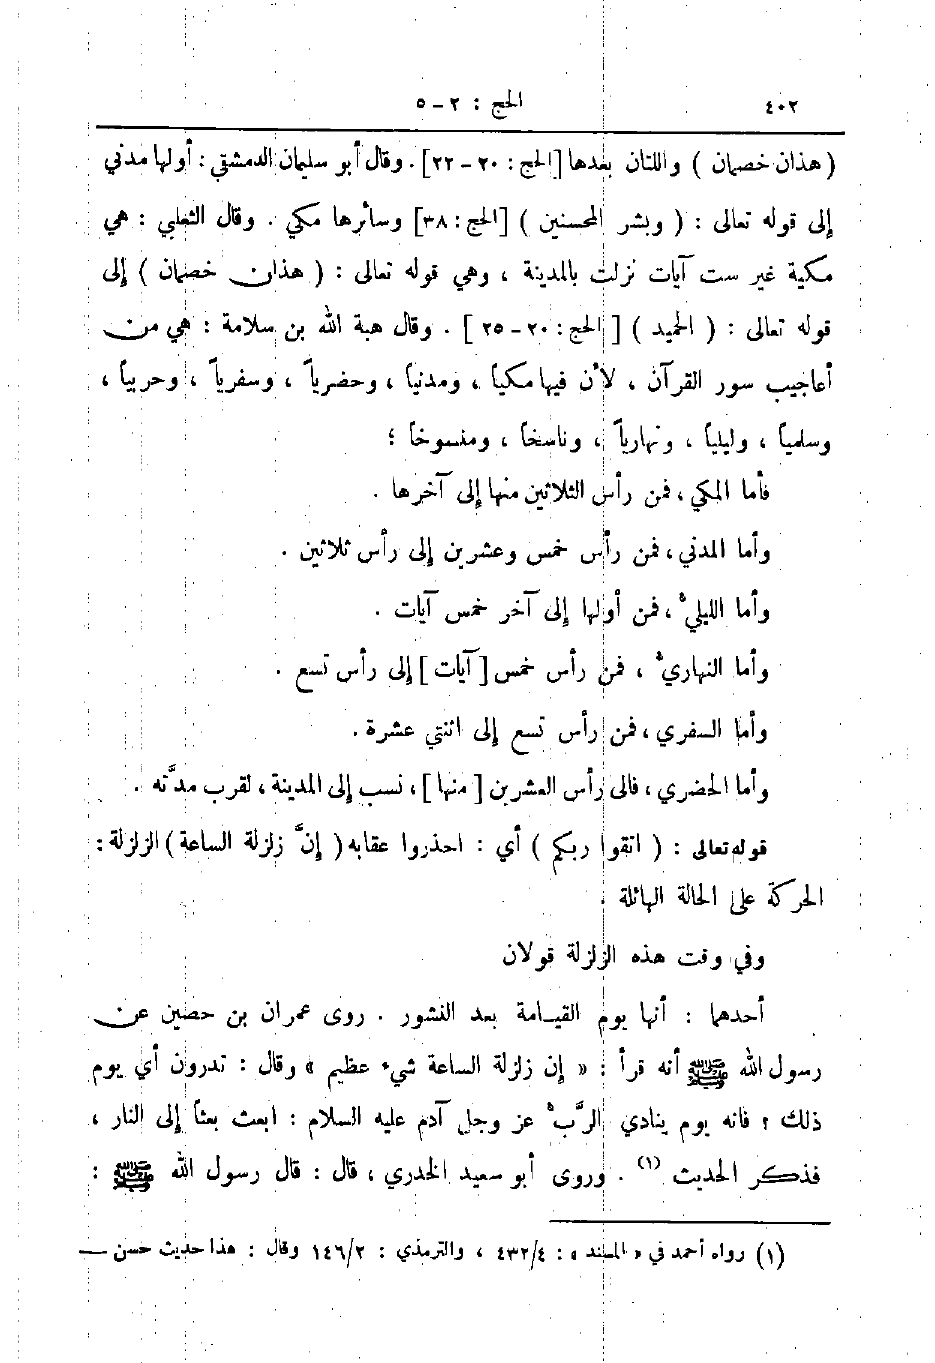 ٤٠٢
الحج : ٢ - ٥
( هذان خصمان ) واللتان بعدها [ الحج : ٢٠ - ٢٢ ] . وقال أبو سليمان الدمشقي : أولها مدني
إلى قوله تعالى : ( وبشر المحسنين ) [ الحج : ٣٨ ] وسائرها مكي . وقال الثعلبي : هي
مكية غير ست آيات نزلت بالمدينة ، وهي قوله تعالى : ( هذان خصمان ) إلى
قوله تعالى : ( الحميد ) [ الحج : ٢٠ - ٢٥ ] . وقال هبة الله بن سلامة : هي من
أعاجيب سور القرآن ، لأن فيها مكياً ، ومدنياً ، وحضرياً ، وسفرياً ، وحربياً ،
وسلمياً ، وليلياً ، ونهارياً ، وناسخاً ، ومنسوخاً ؛
فأما المكي ، فمن رأس الثلاثين منها إلى آخرها .
وأما المدني ، فمن رأس خمس وعشرين إلى رأس ثلاثين .
وأما الليلي ، فمن أولها إلى آخر خمس آيات .
وأما النهاري ، فمن رأس خمس [ آيات ] إلى رأس تسع .
وأما السفري ، فمن رأس تسع إلى اثنتي عشرة .
وأما الحضري ، فالى رأس العشرين [ منها ] ، نسب إلى المدينة ، لقرب مدَّته .
قوله تعالى : ( اتقوا ربكم ) أي : احذروا عقابه ( إنَّ زلزلة الساعة ) الزلزلة :
الحركة على الحالة الهائلة .
وفي وقت هذه الزلزلة قولان
أحدهما : أنها يوم القيامة بعد النشور . روى عمران بن حصين عن
رسول الله ﷺ أنه قرأ : « إن زلزلة الساعة شيء عظيم » وقال : تدرون أي يوم
ذلك ؟ فانه يوم ينادي الرَّبُّ عز وجل آدم عليه السلام : ابعث بعثاً إلى النار ،
فذكر الحديث (١) . وروى أبو سعيد الخدري ، قال : قال رسول الله ﷺ :
(١) رواه أحمد في « المسند » : ٤٣٢/٤ ، والترمذي : ١٤٦/٢ وقال : هذا حديث حسن —